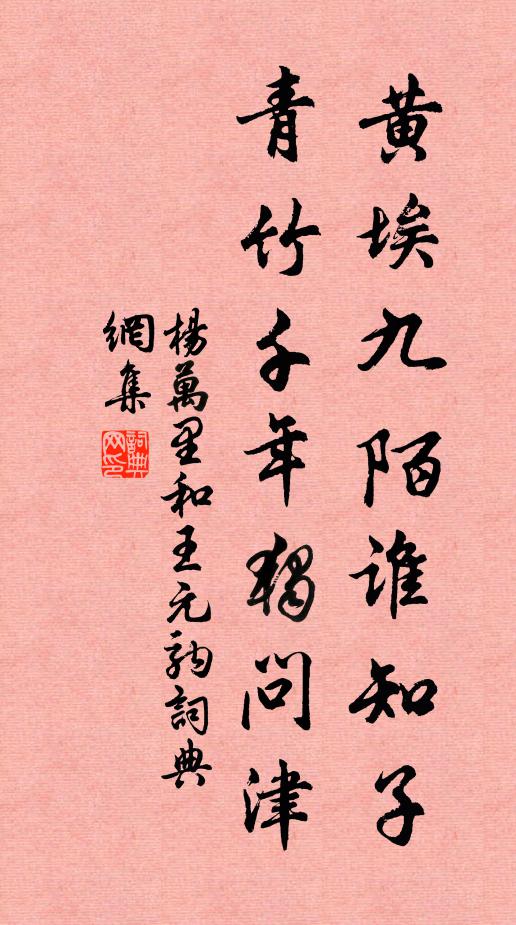 黃埃九陌誰知子
青竹千年獨問津
楊萬里和王元韵詞典
網集
詞典网印